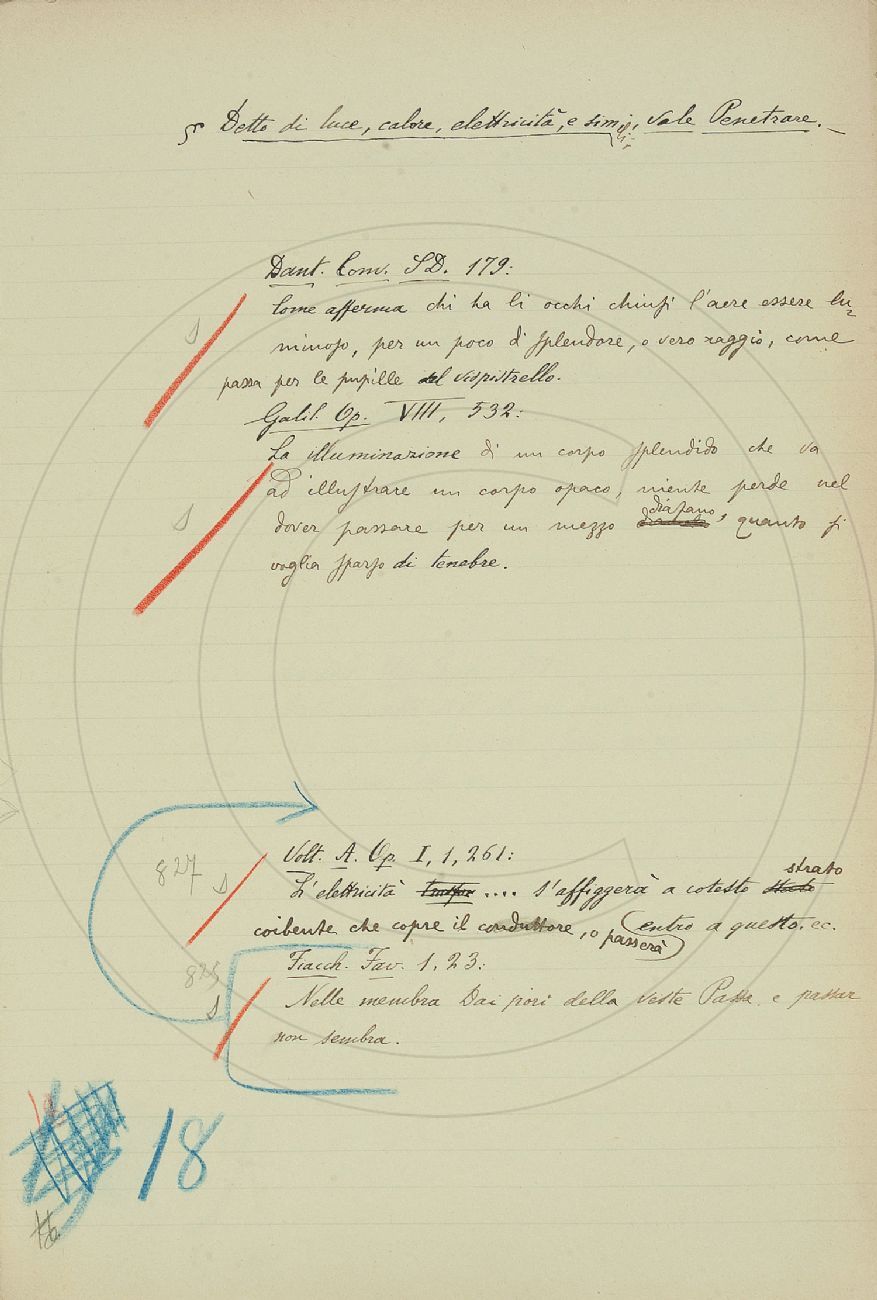 § Detto di luce, calore, elettricità, e simili, vale Penetrare. _
Dant. Conv. SD. 179:
Come afferma chi ha li occhi chiusi l'aere essere lu=
minoso, per un poco di splendore, o vero raggio, come
passa per le pupille del vispistrello.
Galil. Op. VIII, 532:
La illuminazione di un corpo splendido che va
ad illustrare un corpo opaco, niente perde nel
dover passare per un mezzo diafano, quanto si
voglia sparso di tenebre.
827
Volt. A. Op. I, 1, 261:
L'elettricità .... s'affiggerà a cotesto strato
coibente che copre il conduttore, o passerà entro a questo. ec.
828
Fiacch. Fav. 1, 23:
Nelle membra Dai fiori della veste Passa e passar
non sembra.
18